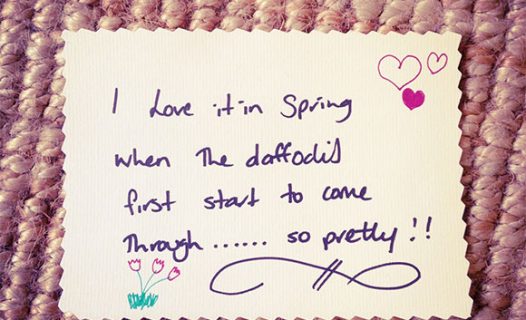 I Love it in Spring
when The daffodils
first start to come
Through ...... so pretly!!